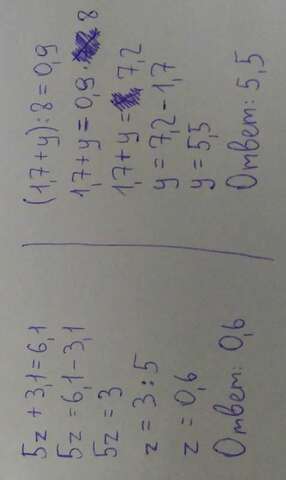 5z + 3,1 = 6,1
5z = 6,1 - 3,1
5z = 3
z = 3 : 5
z = 0,6
Ответ: 0,6
(1,7 + y) : 8 = 0,9
1,7 + y = 0,9 · 8
1,7 + y = 7,2
y = 7,2 - 1,7
y = 5,5
Ответ: 5,5